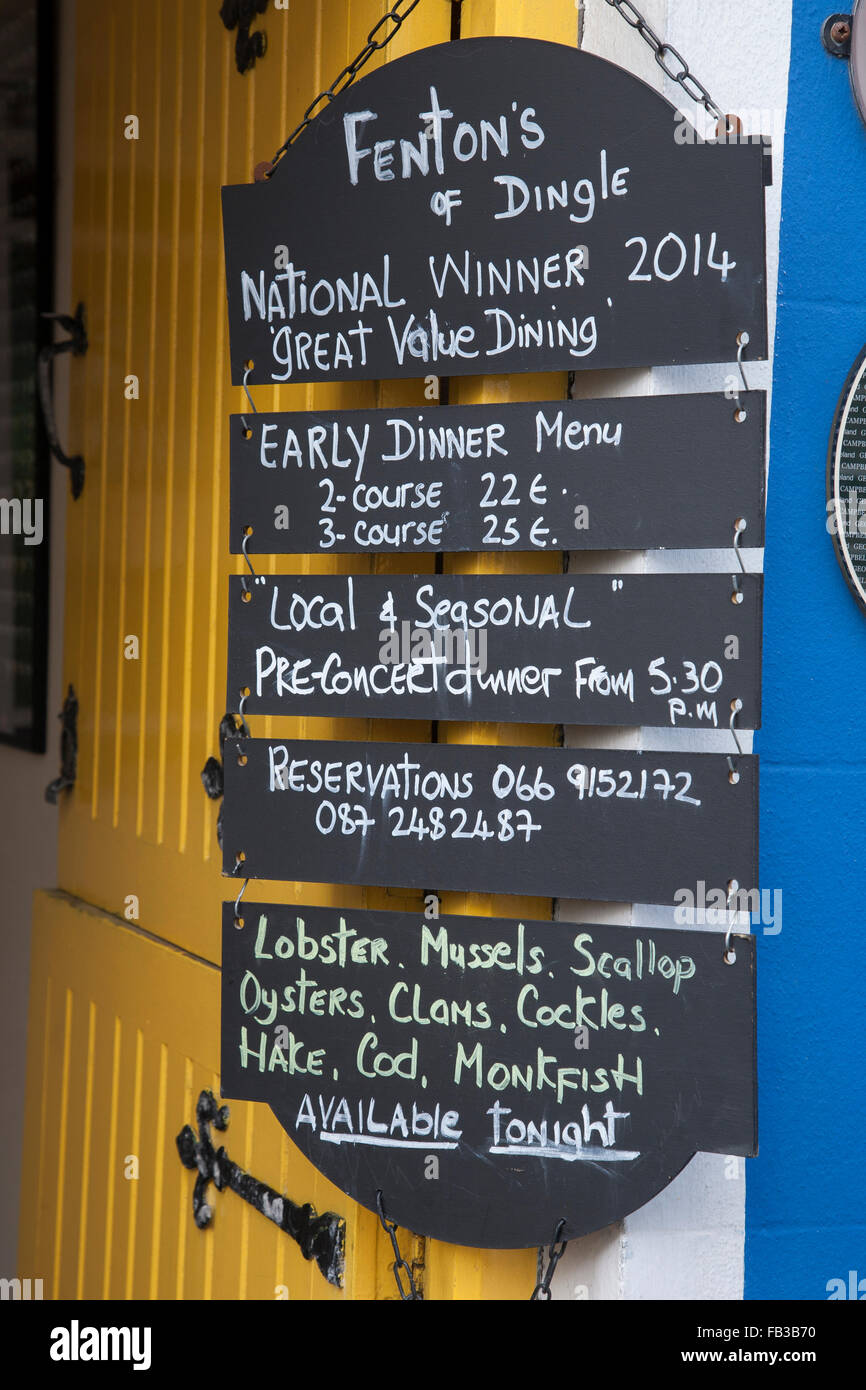 FENTON'S
OF DINGLE
NATIONAL WINNER 2014
'GREAT Value DINING'
EARLY DINNER Menu
2-COURSE 22 €.
3-COURSE 25 €.
"Local & SEASONAL"
PRE-CONCERT dinner FROM 5.30
P.M
RESERVATIONS 066 9152172
087 2482487
Lobster. Mussels. Scallop
Oysters. Clams. Cockles.
HAKE. Cod. MONKFISH
AVAILABLE tonight
CAMPBELL
alamy
Image ID: FB3B70
www.alamy.com